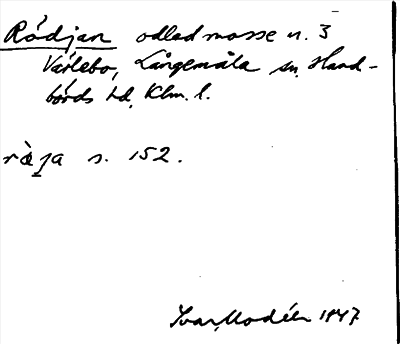 Rödjan odlad mosse n. 3
Värlebo, Långemåla sn, Hand-
börds hd, Klm. l.
ràja s. 152.
Ivar Modéer 1947